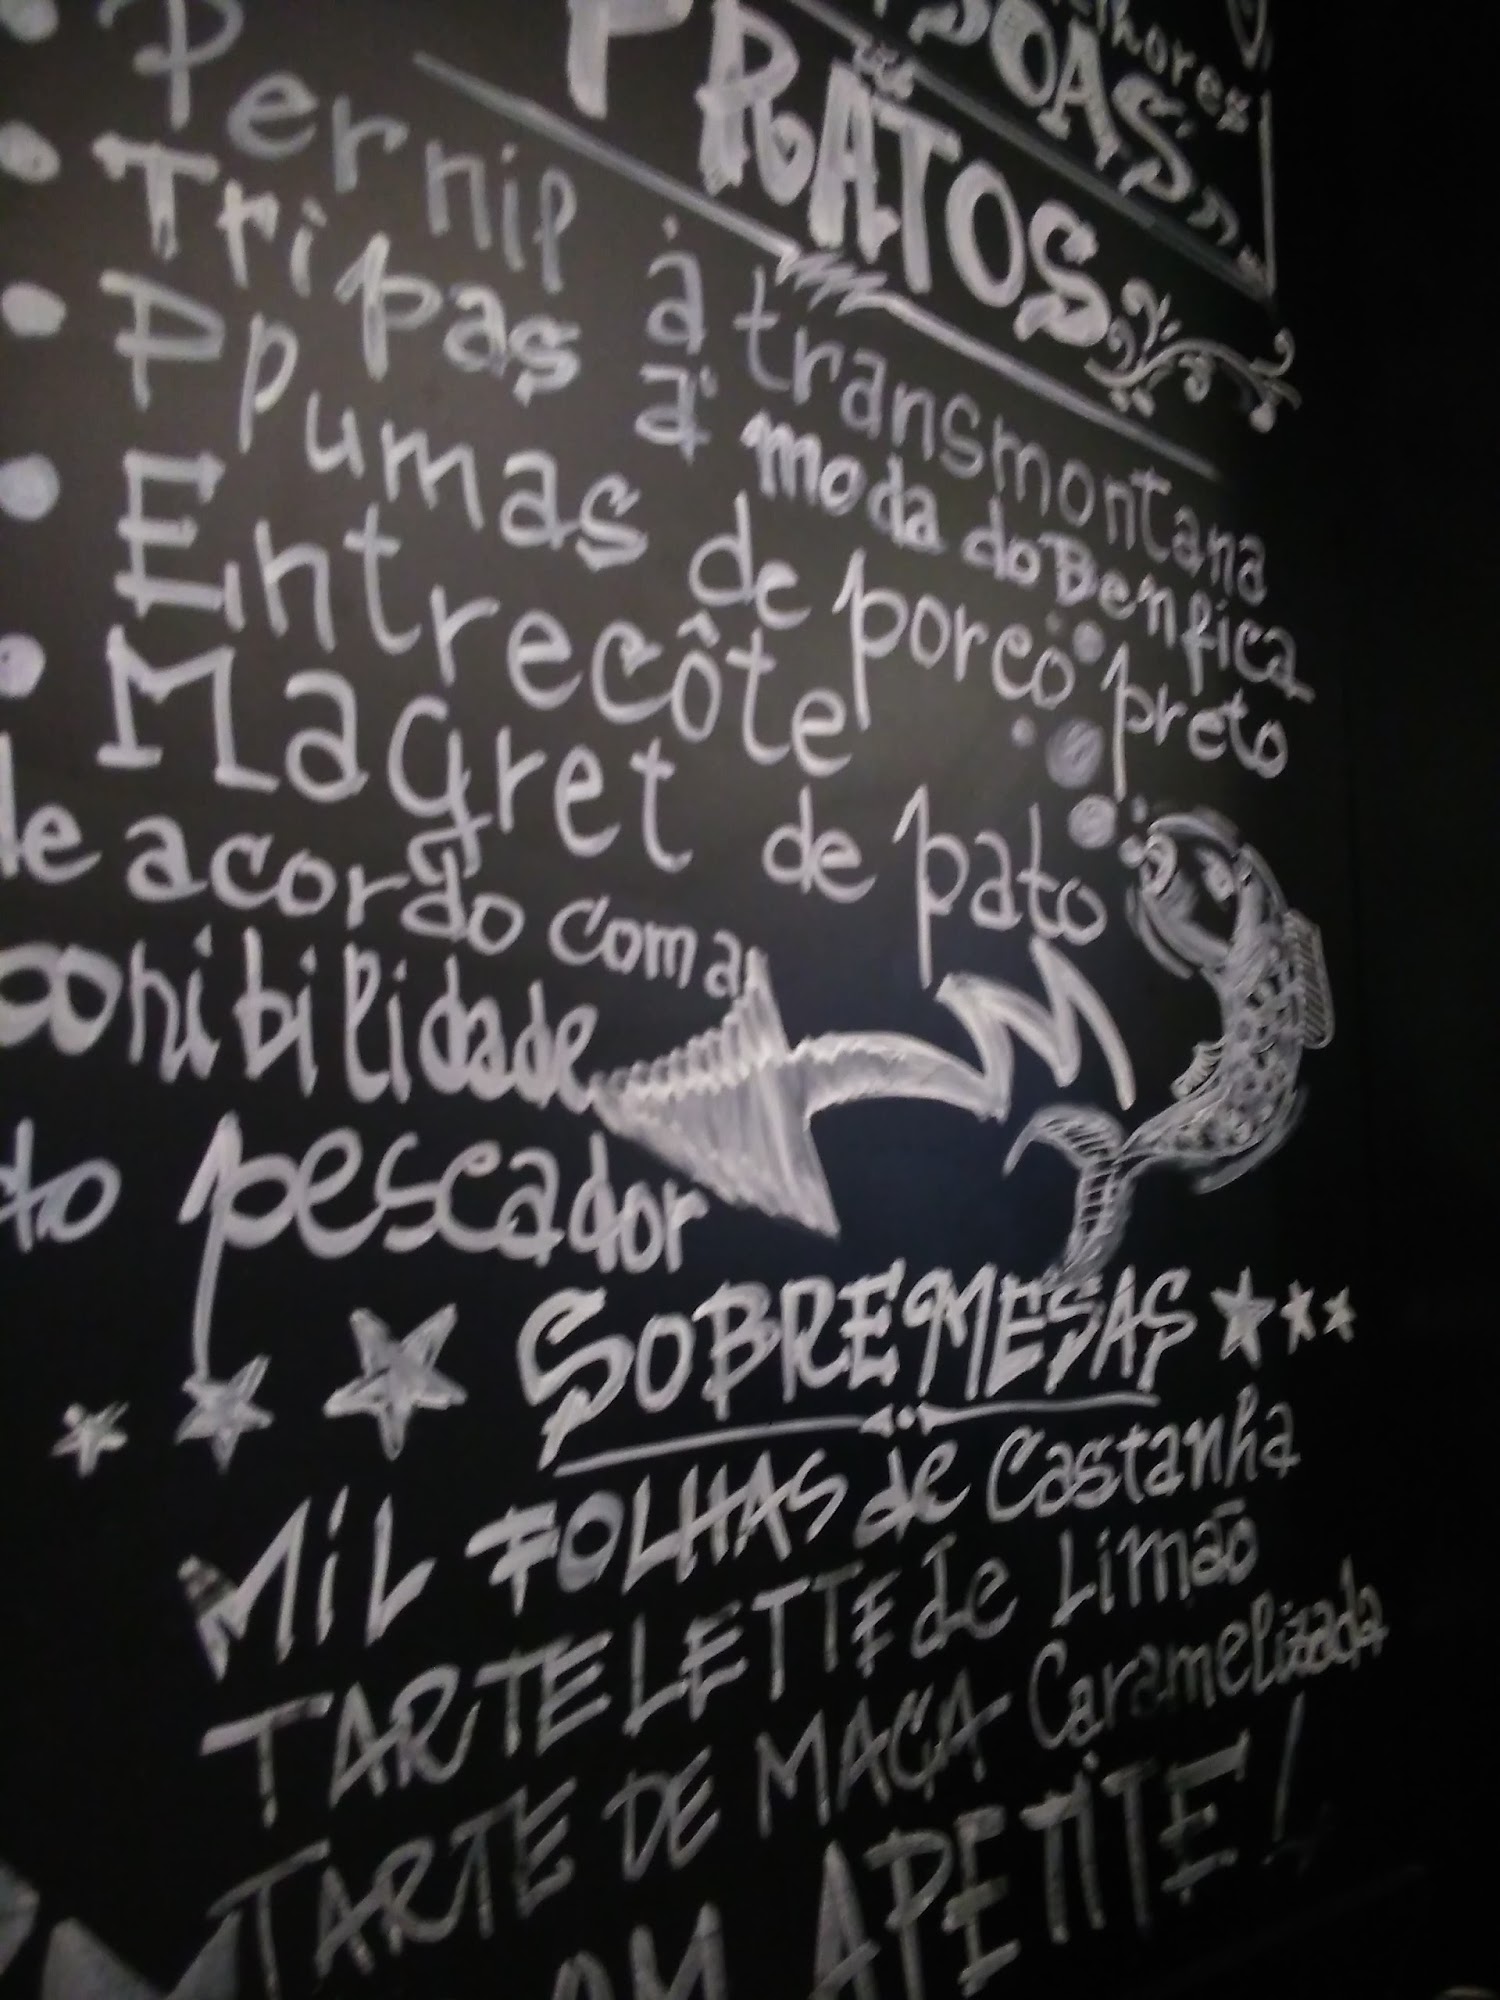 PRATOS
Pernil à transmontana
Tripas à moda do Benfica
Ppumas de porco preto
Entrecôte
Magret de pato
de acordo com a
ponibilidade
do pescador
SOBREMESAS
MiL FOLHAS de Castanha
TARTELETTE de Limão
TARTE DE MAÇA Caramelizada
APETITE!